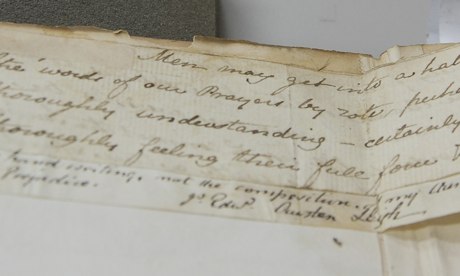 Men may get into a hab
the words of our Prayers by rote, perha
thoroughly understanding – certainly
thoroughly feeling their full force &
hand writing, not the composition of my Aun
Prejudice. Edwd Austen Leigh